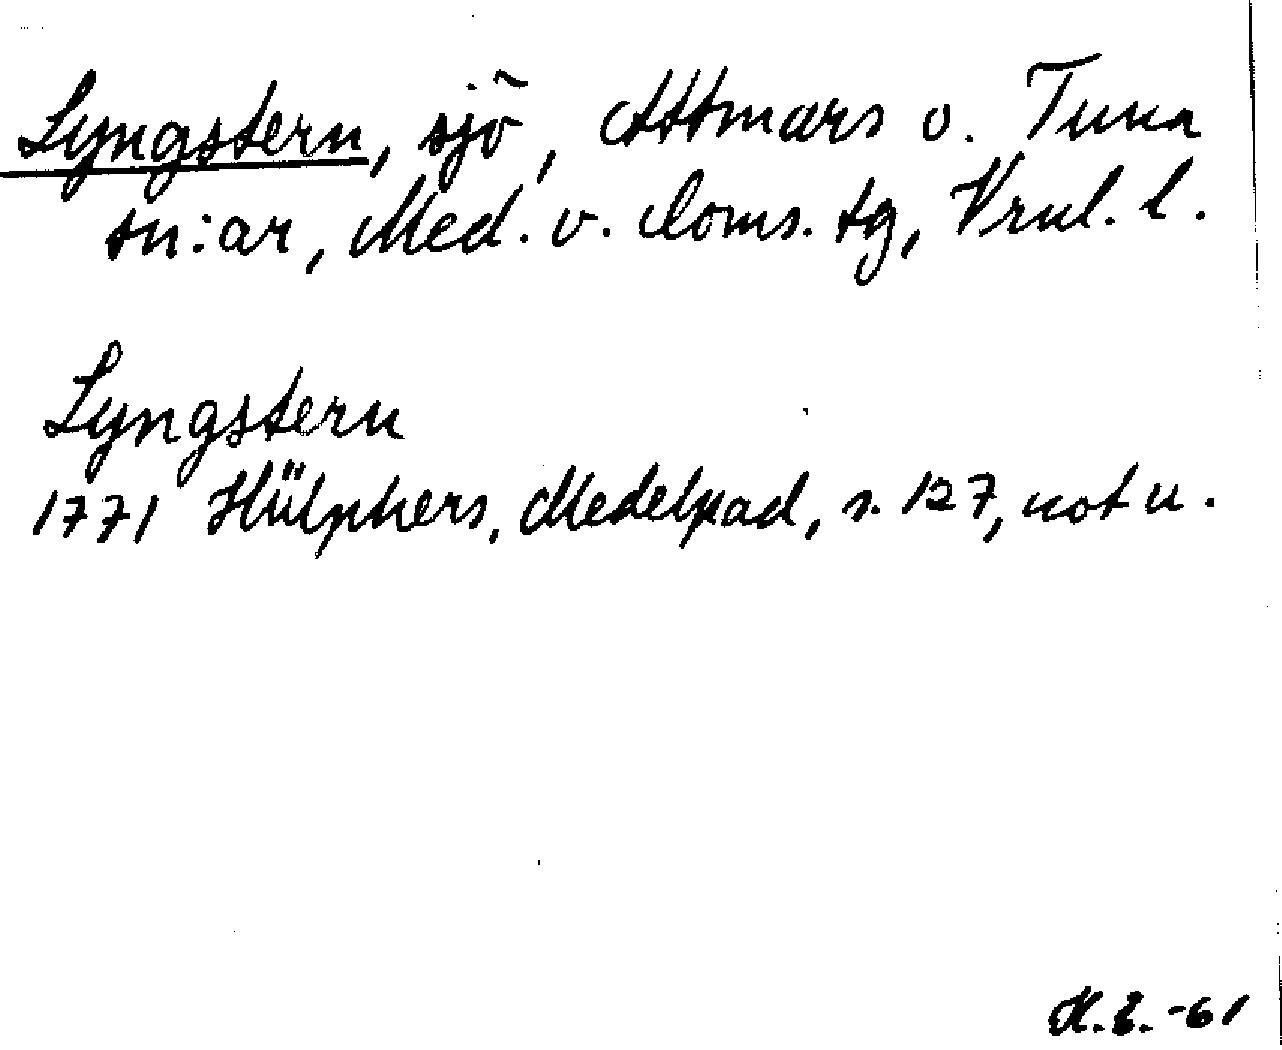 Lyngstern, sjö, Attmars o. Tuna
sn:ar, Med. v. doms. tg, Vrnl. l.
Lyngstern
1771 Hülphers, Medelpad, s. 127, not u.
H.E.-61